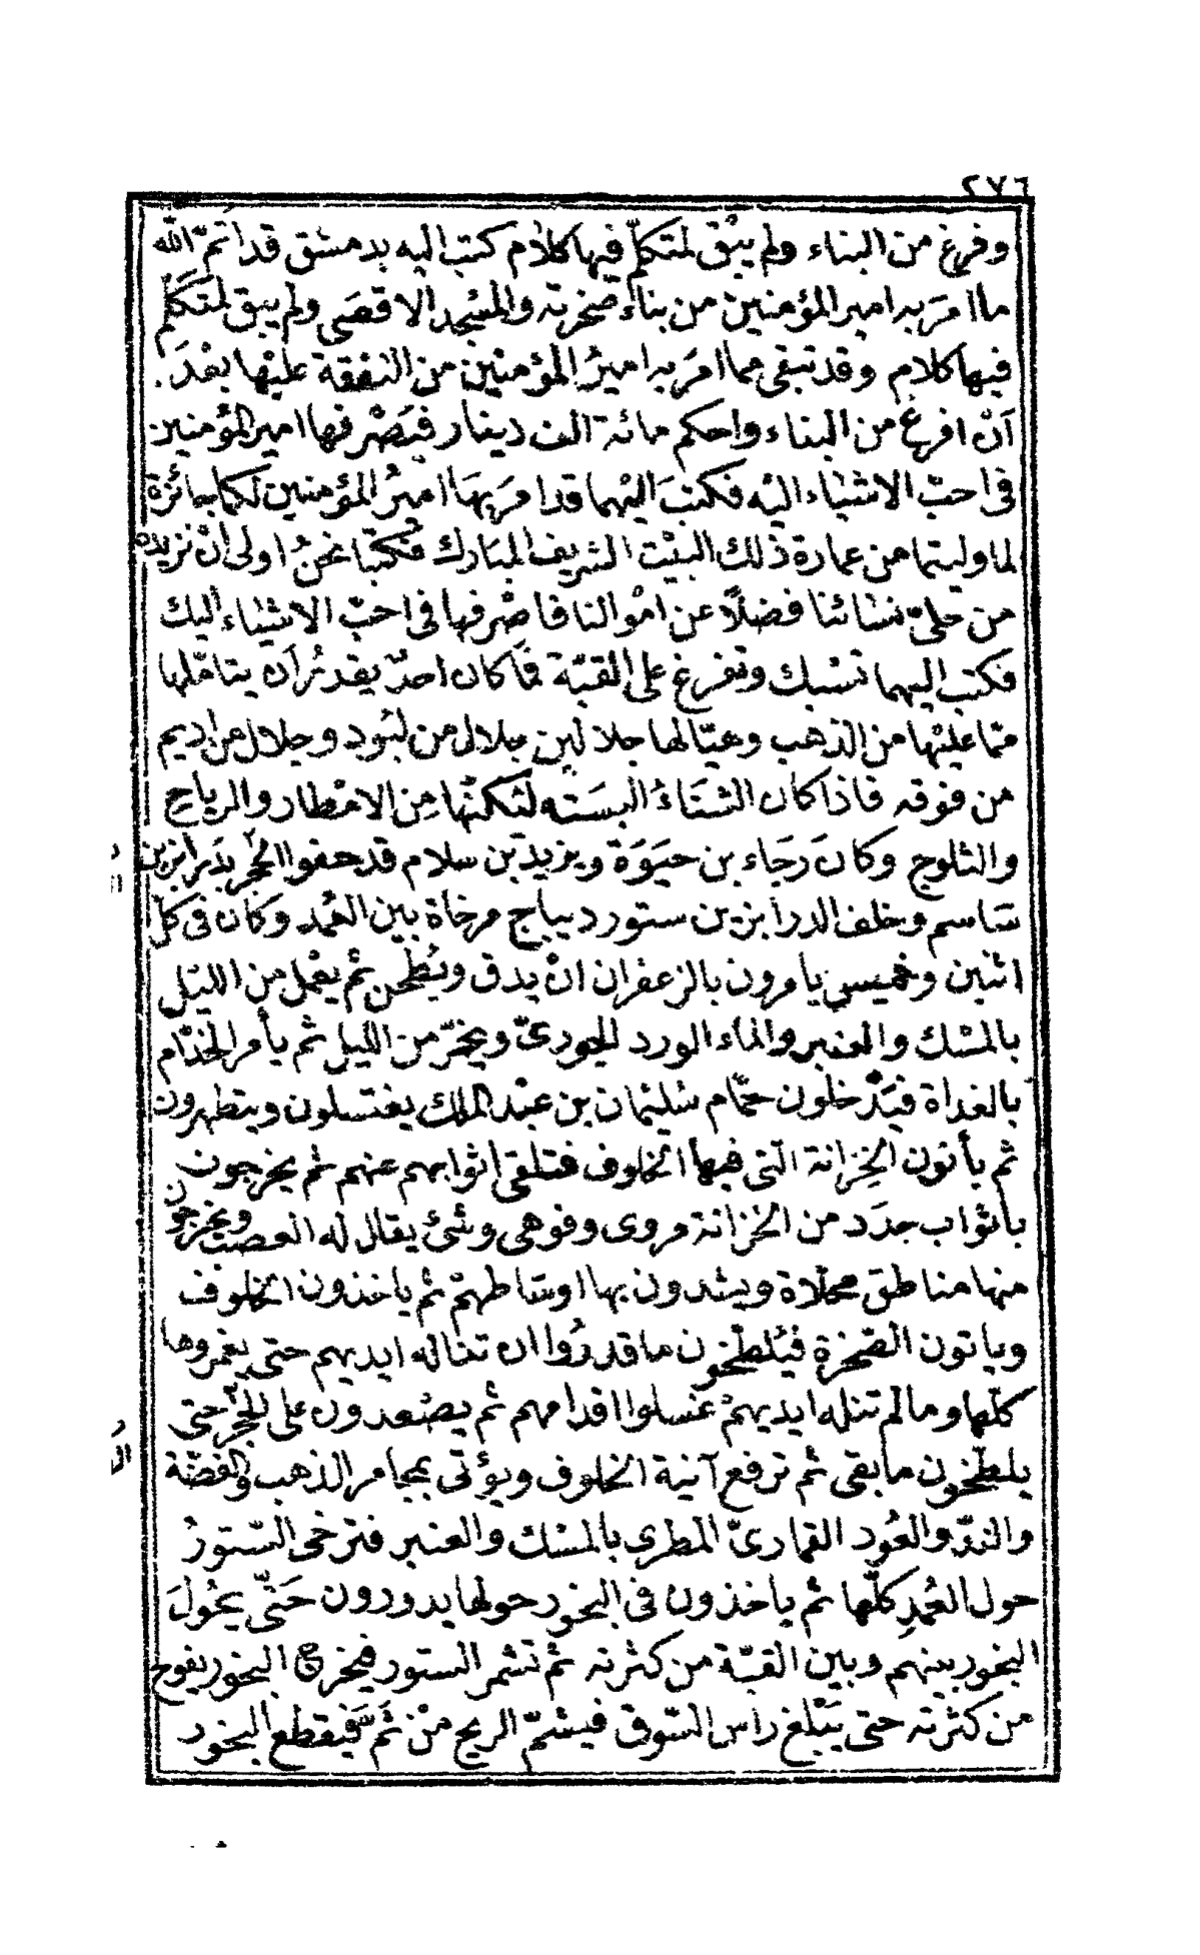 ٢٧٦
وفرغ من البناء ولم يبْق لمتكلّم فيها كلام كتب اليه بدمشق قد اتمّ الله
ما امرَ به امير المؤمنين من بناء صخرته والمسْجد الاقصَى ولم يبق لمتكَلّم
فيها كلام وقد تبقى مما امرَ به اميرُ المؤمنين من النفقة عليْها بعْدَ
اَنْ افرغ من البناء واحكم مائة الف دينار فيَصْرفها امير المؤمنين
فى احبّ الاشياء اليْه فكتبَ اليْهما قد امرَ بهَا اميرُ المؤمنين لكما جائزة
لما وليتما من عمارة ذلك البيْت الشريف المبَارك فكتبا نحنُ اولى انْ نزيده
من حلىّ نسَائنا فضلاً عن امْوالنا فاصْرفها فى احبّ الاشيَاء اليك
فكتب اليهما تسْبك وتفرغ على القبّة فمَا كان احدٌ يقدرُ اَن يتامّلها
ممّا عليْها من الذهب وهيّا لها جلالين جلال من لبُود وجلال من اديم
من فوقه فاذا كان الشتَاءُ البسَته لتكنّها مِن الامْطار والرياحِ
والثلوج وكانَ رجَاء بن حيَوَة ويزيد بن سلام قد حفوا الحجر بدَرابزين
سَاسم وخلف الدرابزين ستور ديباج مرخاة بين العُمد وكان فى كل
اثنين وخميسٍ يامرون بالزعفران انْ يدق ويُطْحن ثم يعْمل من الليَل
بالمسْك والعنبر والماء الورد الجورىّ ويخمّر من الليل ثم يأمر الخدّام
بالغداة فيَدْخلون حمّام سُليْمان بن عبْد الملك يغتسلون ويتطهرون
ثم يأتون الخِزانة التى فيها الخلوف فتلقى اثوابهم عنهم ثم يخرجون
بأثواب جدَد من الخزانة مروى وفوهى وشئ يقال له العصب ويخرجون
منها مناطق محلاة ويشدون بها اوسَاطهمْ ثم ياخذون الخلوف
وياتون الصّخرة فيُلطّخون ما قدرُوا ان تناله ايديهم حتى يغمروها
كلّها وما لم تنله ايديهمْ غسلوا اقدامهم ثم يصْعدون على الحجر حتى
يلطّخون ما بقى ثم ترفع آنية الخلوف ويؤتى بمجامر الذهب والفضّة
والندّ والعُود القمارىّ المطرى بالمسْك والعنبر فترخى السّتورُ
حول العُمدِ كلّها ثم ياخذون فى البخور حولها يدورون حَتّى يحُولَ
البخور بينهم وبين القبّة من كثرته ثم تشمر الستور فيخرج البخور يفوح
من كثرته حتى يَبْلغ رأس السّوق فيشمّ الريح منْ ثَمّ فينقطع البخور